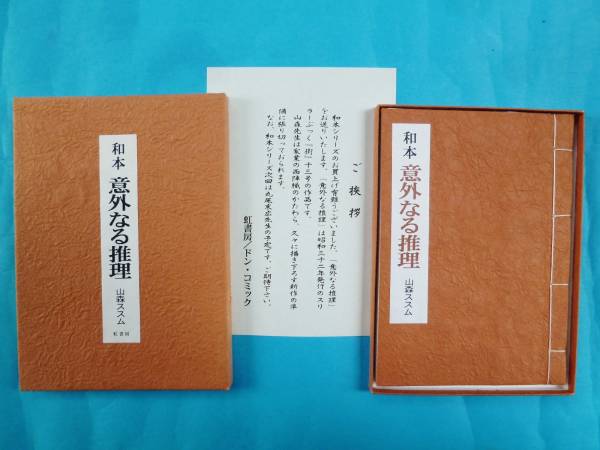 和本
意外なる推理
山森ススム
虹書房
ご挨拶
和本シリーズのお買上げ有難うございました。「意外なる推理」
をお送りいたします。「意外なる推理」は昭和三十二年発行のスリ
ラーぶっく「街」十三号の作品です。
山森先生は家業の西陣織のかたわら、久々に描き下ろす新作の準
備に張り切っておられます。
なお、和本シリーズ次回は丸尾末広先生の予定です。ご期待下さい。
虹書房／ドン・コミック
和本
意外なる推理
山森ススム